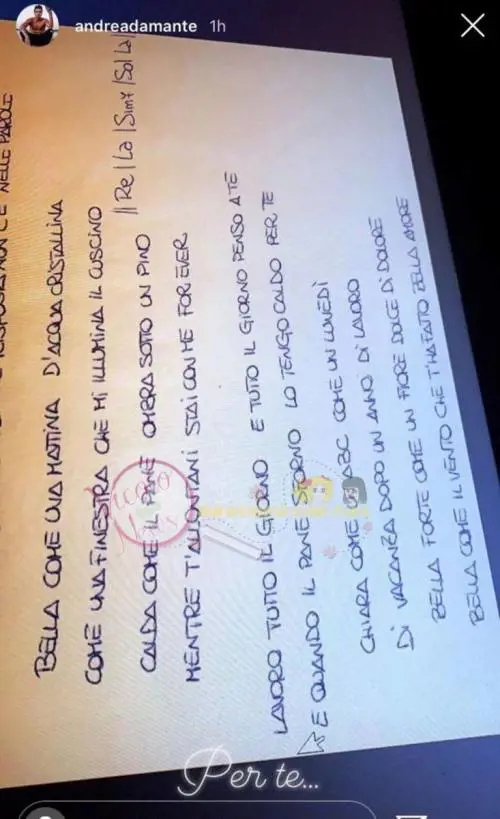 andreadamante 1h
NELLE PAROLE
|| Re | La | Sim7 | Sol La |
BELLA COME UNA MATTINA D'ACQUA CRISTALLINA
COME UNA FINESTRA CHE MI ILLUMINA IL CUSCINO
CALDA COME IL PANE OMBRA SOTTO UN PINO
MENTRE T'ALLONTANI STAI CON ME FOREVER
LAVORO TUTTO IL GIORNO E TUTTO IL GIORNO PENSO A TE
E QUANDO IL PANE SFORNO LO TENGO CALDO PER TE
CHIARA COME ABC COME UN LUNEDÌ
DI VACANZA DOPO UN ANNO DI LAVORO
BELLA FORTE COME UN FIORE DOLCE DI DOLORE
BELLA COME IL VENTO CHE T'HA FATTO BELLA AMORE
Per te...